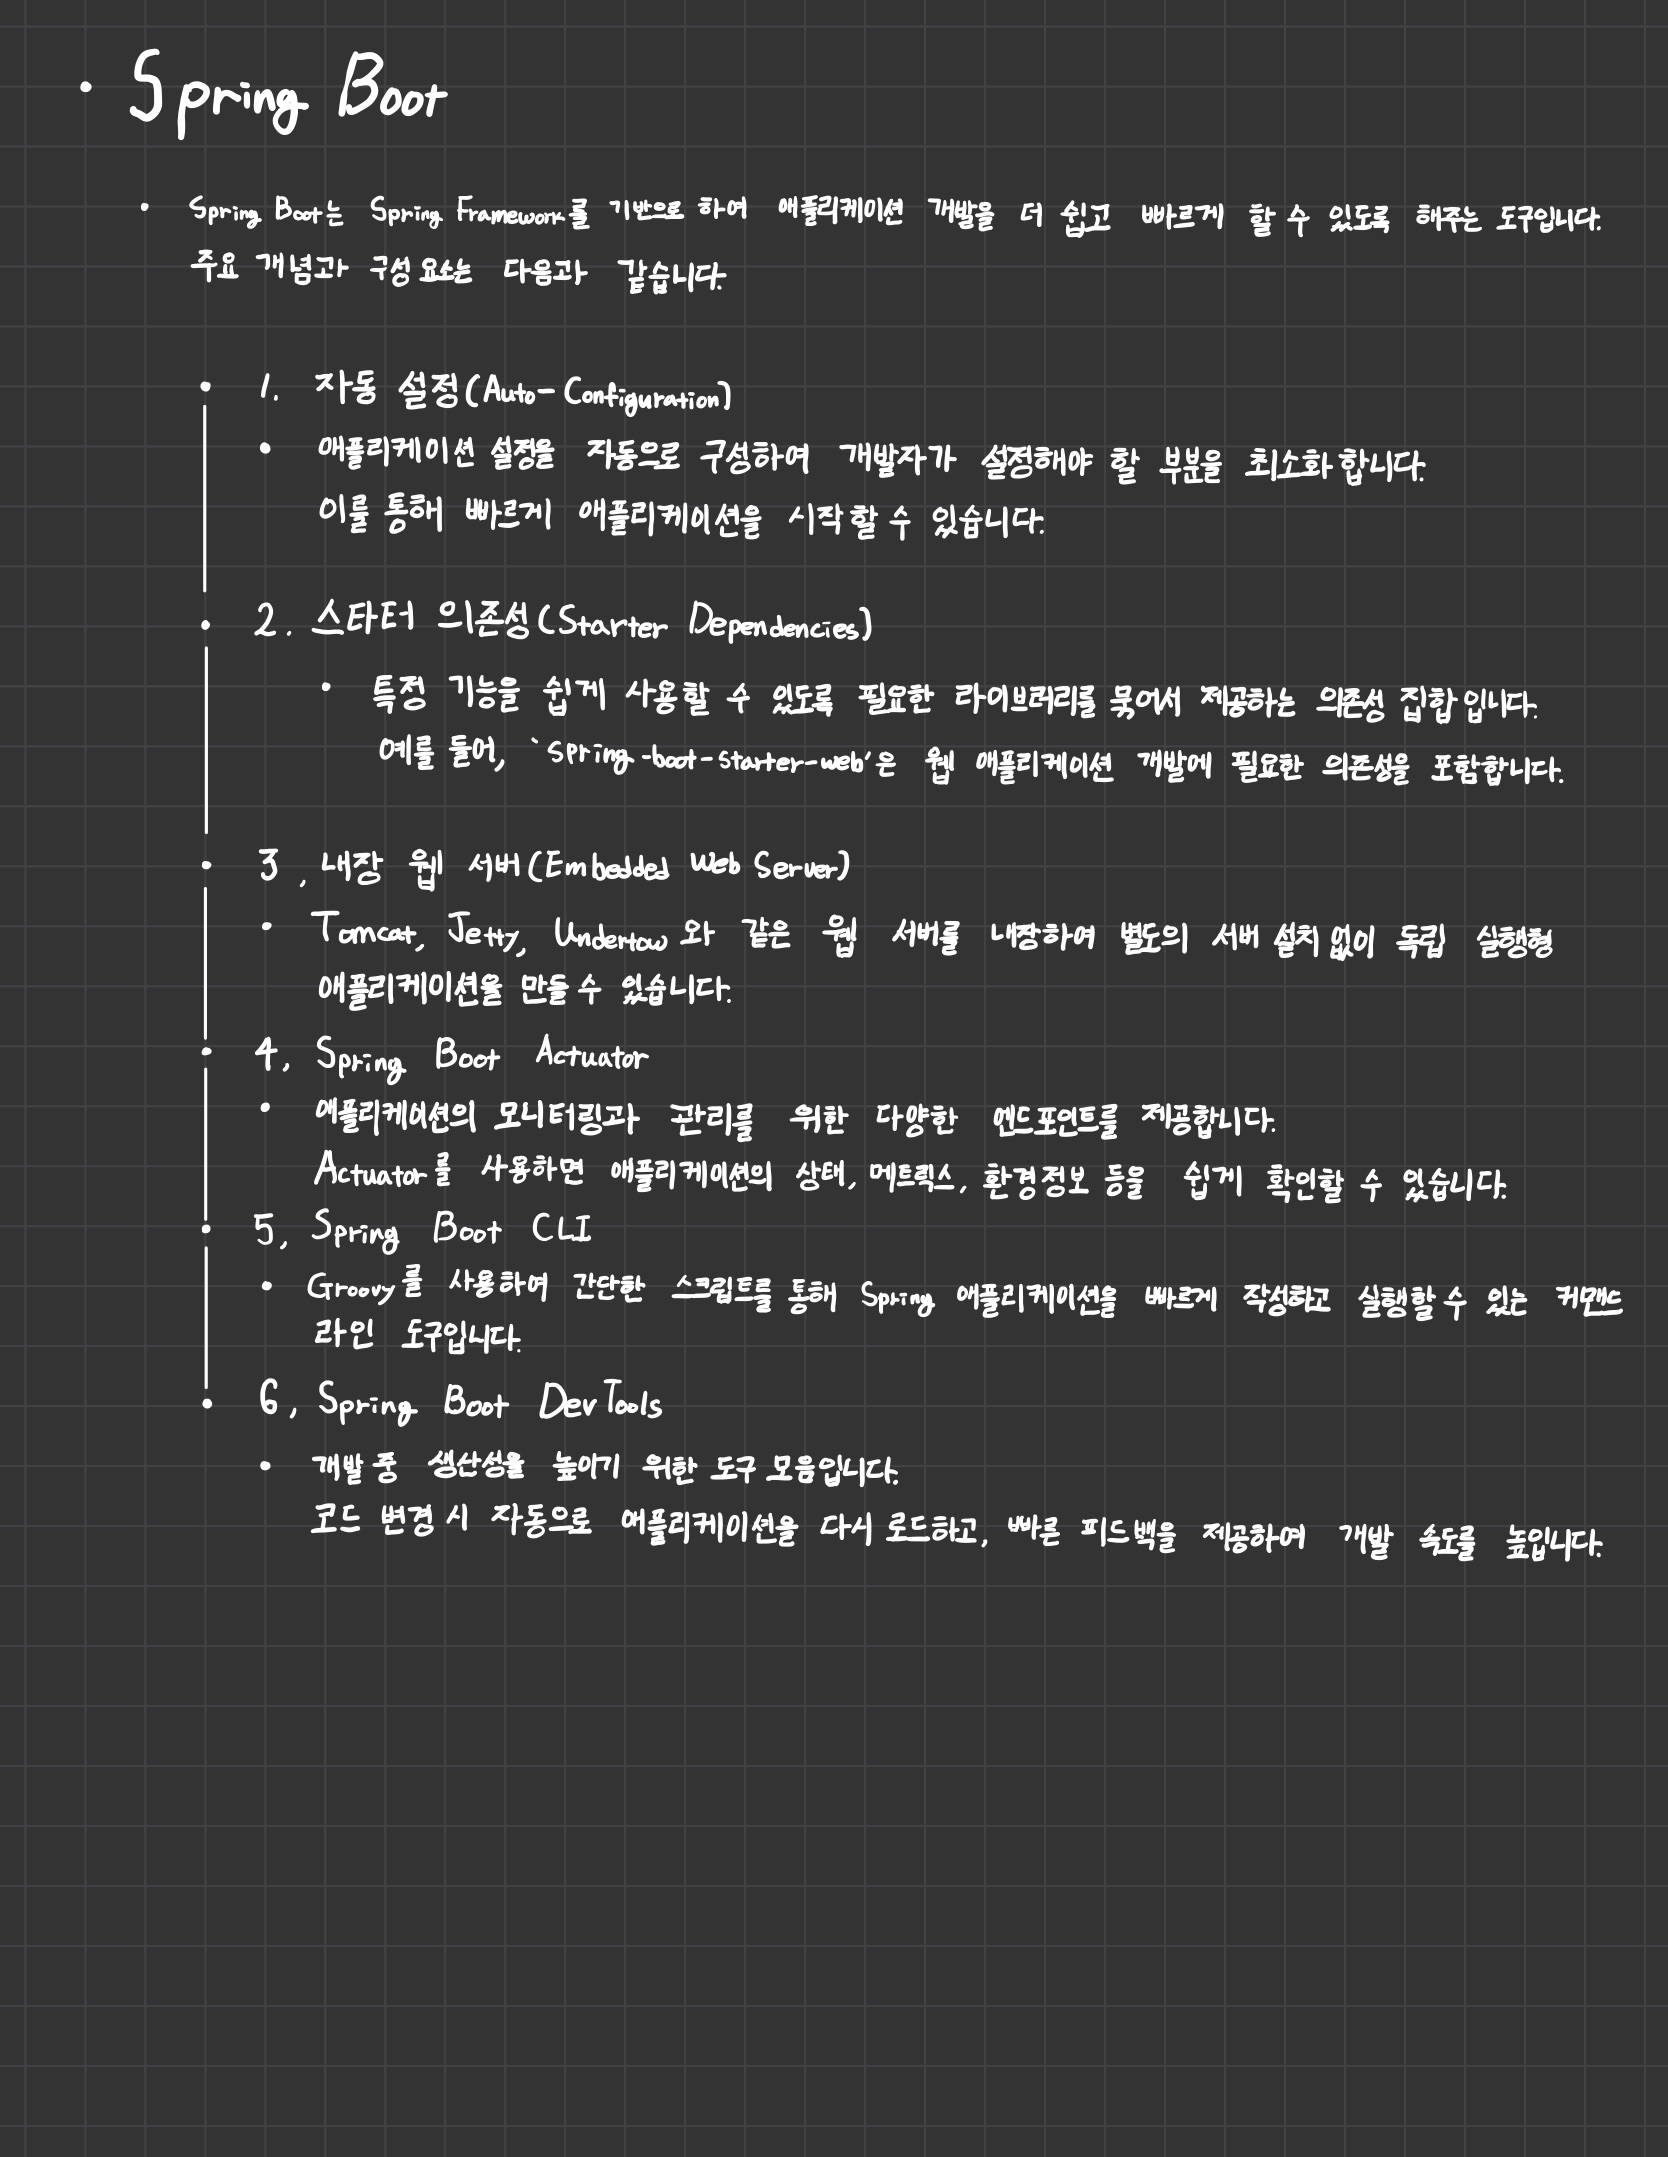 • Spring Boot
• Spring Boot는 Spring Framework를 기반으로 하여 애플리케이션 개발을 더 쉽고 빠르게 할 수 있도록 해주는 도구입니다.
주요 개념과 구성 요소는 다음과 같습니다.
• 1. 자동 설정(Auto-Configuration)
• 애플리케이션 설정을 자동으로 구성하여 개발자가 설정해야 할 부분을 최소화 합니다.
이를 통해 빠르게 애플리케이션을 시작할 수 있습니다.
• 2. 스타터 의존성(Starter Dependencies)
• 특정 기능을 쉽게 사용할 수 있도록 필요한 라이브러리를 묶어서 제공하는 의존성 집합입니다.
예를 들어, `spring-boot-starter-web'은 웹 애플리케이션 개발에 필요한 의존성을 포함합니다.
• 3, 내장 웹 서버(Embedded Web Server)
• Tomcat, Jetty, Undertow와 같은 웹 서버를 내장하여 별도의 서버 설치 없이 독립 실행형
애플리케이션을 만들 수 있습니다.
• 4, Spring Boot Actuator
• 애플리케이션의 모니터링과 관리를 위한 다양한 엔드포인트를 제공합니다.
Actuator를 사용하면 애플리케이션의 상태, 메트릭스, 환경정보 등을 쉽게 확인할 수 있습니다.
• 5, Spring Boot CLI
• Groovy를 사용하여 간단한 스크립트를 통해 Spring 애플리케이션을 빠르게 작성하고 실행할 수 있는 커맨드
라인 도구입니다.
• 6, Spring Boot DevTools
• 개발 중 생산성을 높이기 위한 도구 모음입니다.
코드 변경 시 자동으로 애플리케이션을 다시 로드하고, 빠른 피드백을 제공하여 개발 속도를 높입니다.